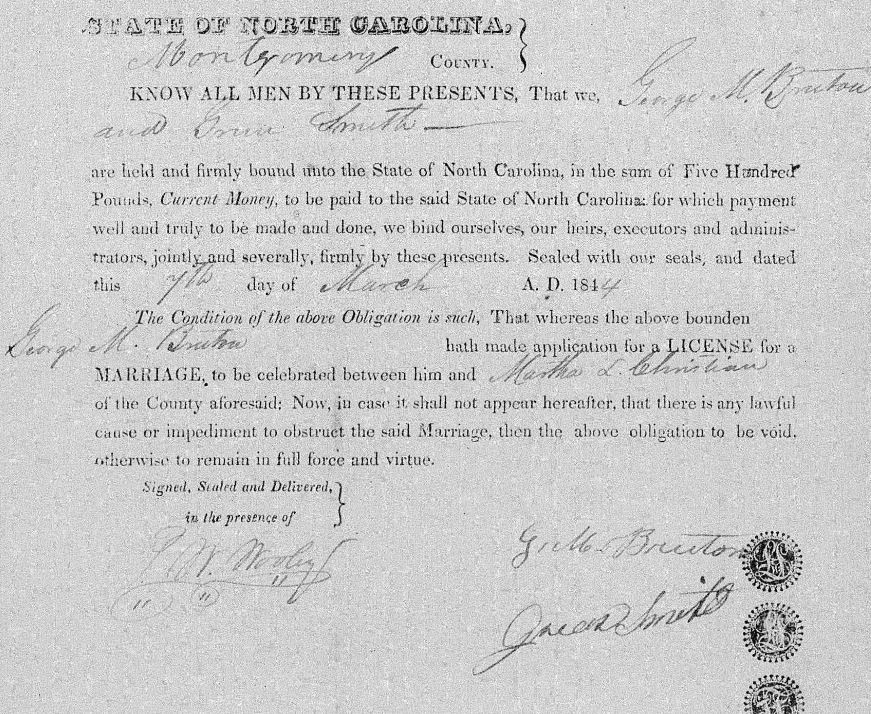 STATE OF NORTH CAROLINA,
Montgomery COUNTY.
KNOW ALL MEN BY THESE PRESENTS, That we, George M. Bruton
and Smith
are held and firmly bound unto the State of North Carolina, in the sum of Five Hundred
Pounds, Current Money, to be paid to the said State of North Carolina: for which payment
well and truly to be made and done, we bind ourselves, our heirs, executors and adminis-
trators, jointly and severally, firmly by these presents. Sealed with our seals, and dated
this 7th day of March A. D. 1844
The Condition of the above Obligation is such, That whereas the above bounden
George M. Bruton hath made application for a LICENSE for a
MARRIAGE, to be celebrated between him and Martha L. Christian
of the County aforesaid; Now, in case it shall not appear hereafter, that there is any lawful
cause or impediment to obstruct the said Marriage, then the above obligation to be void,
otherwise to remain in full force and virtue.
Signed, Sealed and Delivered,
in the presence of
W. Wooley
G. M. Bruton
Smith